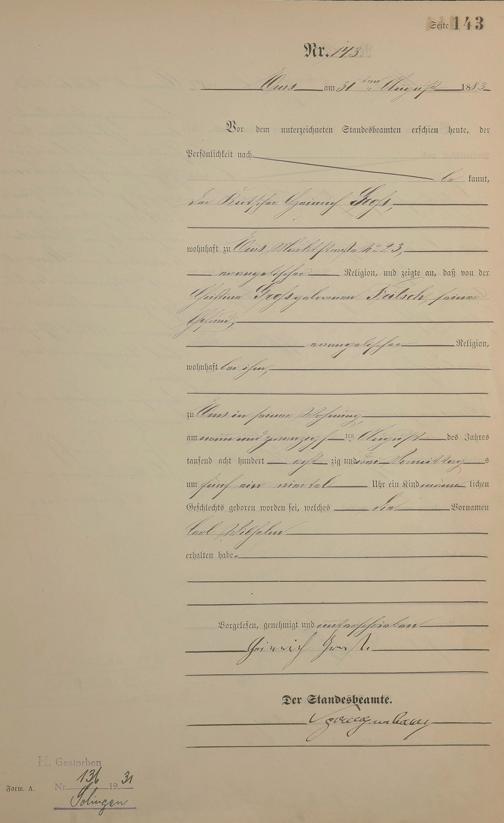 Seite 143
Nr. 143
Ems am 31 ten August 1883
Vor dem unterzeichneten Standesbeamten erschien heute, der
Persönlichkeit nach
be kannt,
der Kutscher Heinrich Groß,
wohnhaft zu Ems, No 23,
evangelischer Religion, und zeigte an, daß von der
Groß geborenen Fritsch seiner
Ehefrau,
evangelischer Religion,
wohnhaft bei ihm,
zu Ems in seiner Wohnung
am neun und zwanzigsten August des Jahres
tausend acht hundert acht zig und drei Vormittags
um fünf ein viertel Uhr ein Kind männlichen
Geschlechts geboren worden sei, welches die Vornamen
Carl Wilhelm
erhalten habe.
Vorgelesen, genehmigt und unterschrieben
Heinrich Groß.
Der Standesbeamte.
H. Gestorben
Nr. 136 1931
Solingen
Form. A.